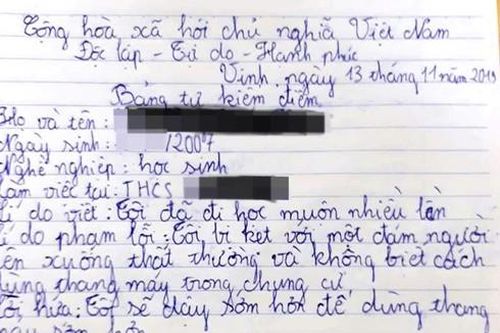 Cộng hòa xã hội chủ nghĩa Việt Nam
Độc lập - Tự do - Hạnh phúc
Vinh, ngày 13 tháng 11 năm 2019
Bảng tự kiểm điểm
Họ và tên :
Ngày sinh : /2007
Nghề nghiệp : học sinh
Làm việc tại : THCS
Lí do viết : Tôi đã đi học muộn nhiều lần
Lí do phạm lỗi : Tôi bị kẹt với một đám người
lên xuống thất thường và không biết cách
dùng thang máy trong chung cư
Tôi hứa : Tôi sẽ dậy sớm hơn để dùng thang
máy sớm hơn